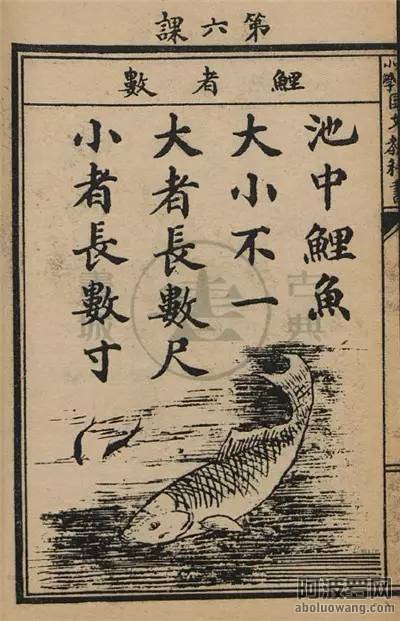 第六課
鯉者數
池中鯉魚
大小不一
大者長數尺
小者長數寸
小學國文教科書
古典
阿波罗网
aboluowang.com